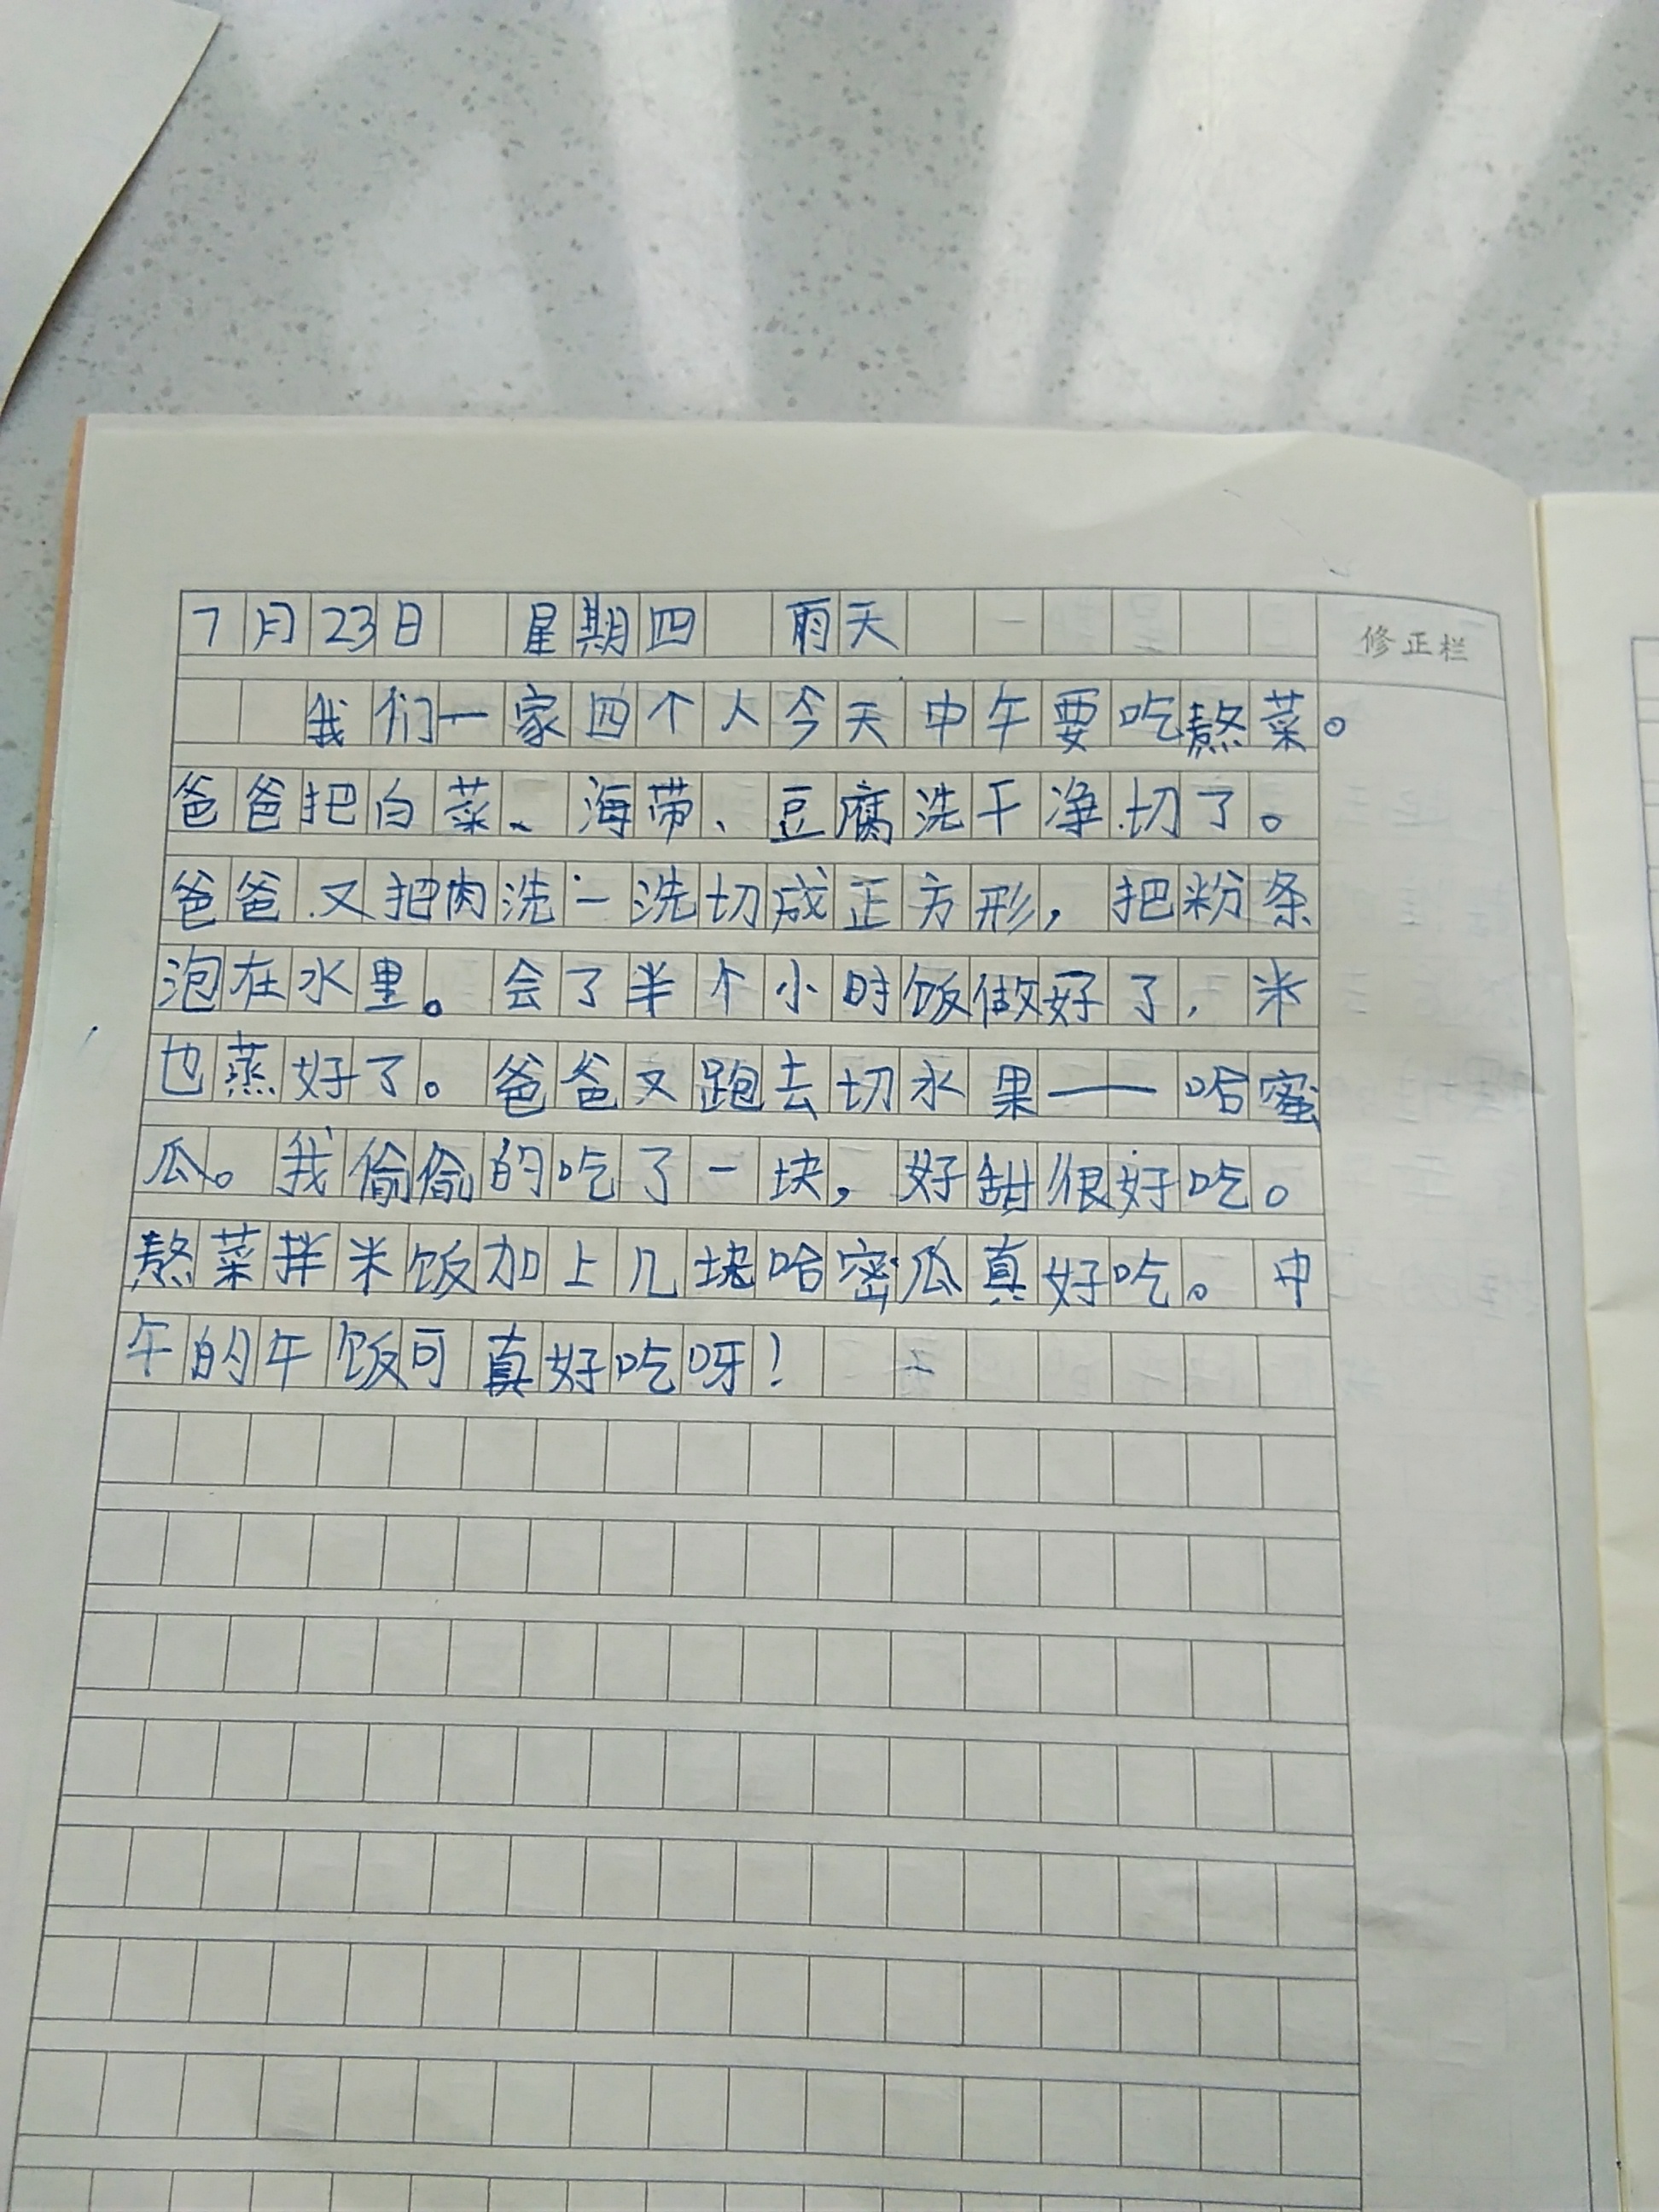 7月23日 星期四 雨天
修正栏
我们一家四个人今天中午要吃熬菜。
爸爸把白菜、海带、豆腐洗干净切了。
爸爸又把肉洗一洗切成正方形，把粉条
泡在水里。会了半个小时饭做好了，米
也蒸好了。爸爸又跑去切水果——哈蜜
瓜。我偷偷的吃了一块，好甜很好吃。
熬菜拌米饭加上几块哈密瓜真好吃。中
午的午饭可真好吃呀！